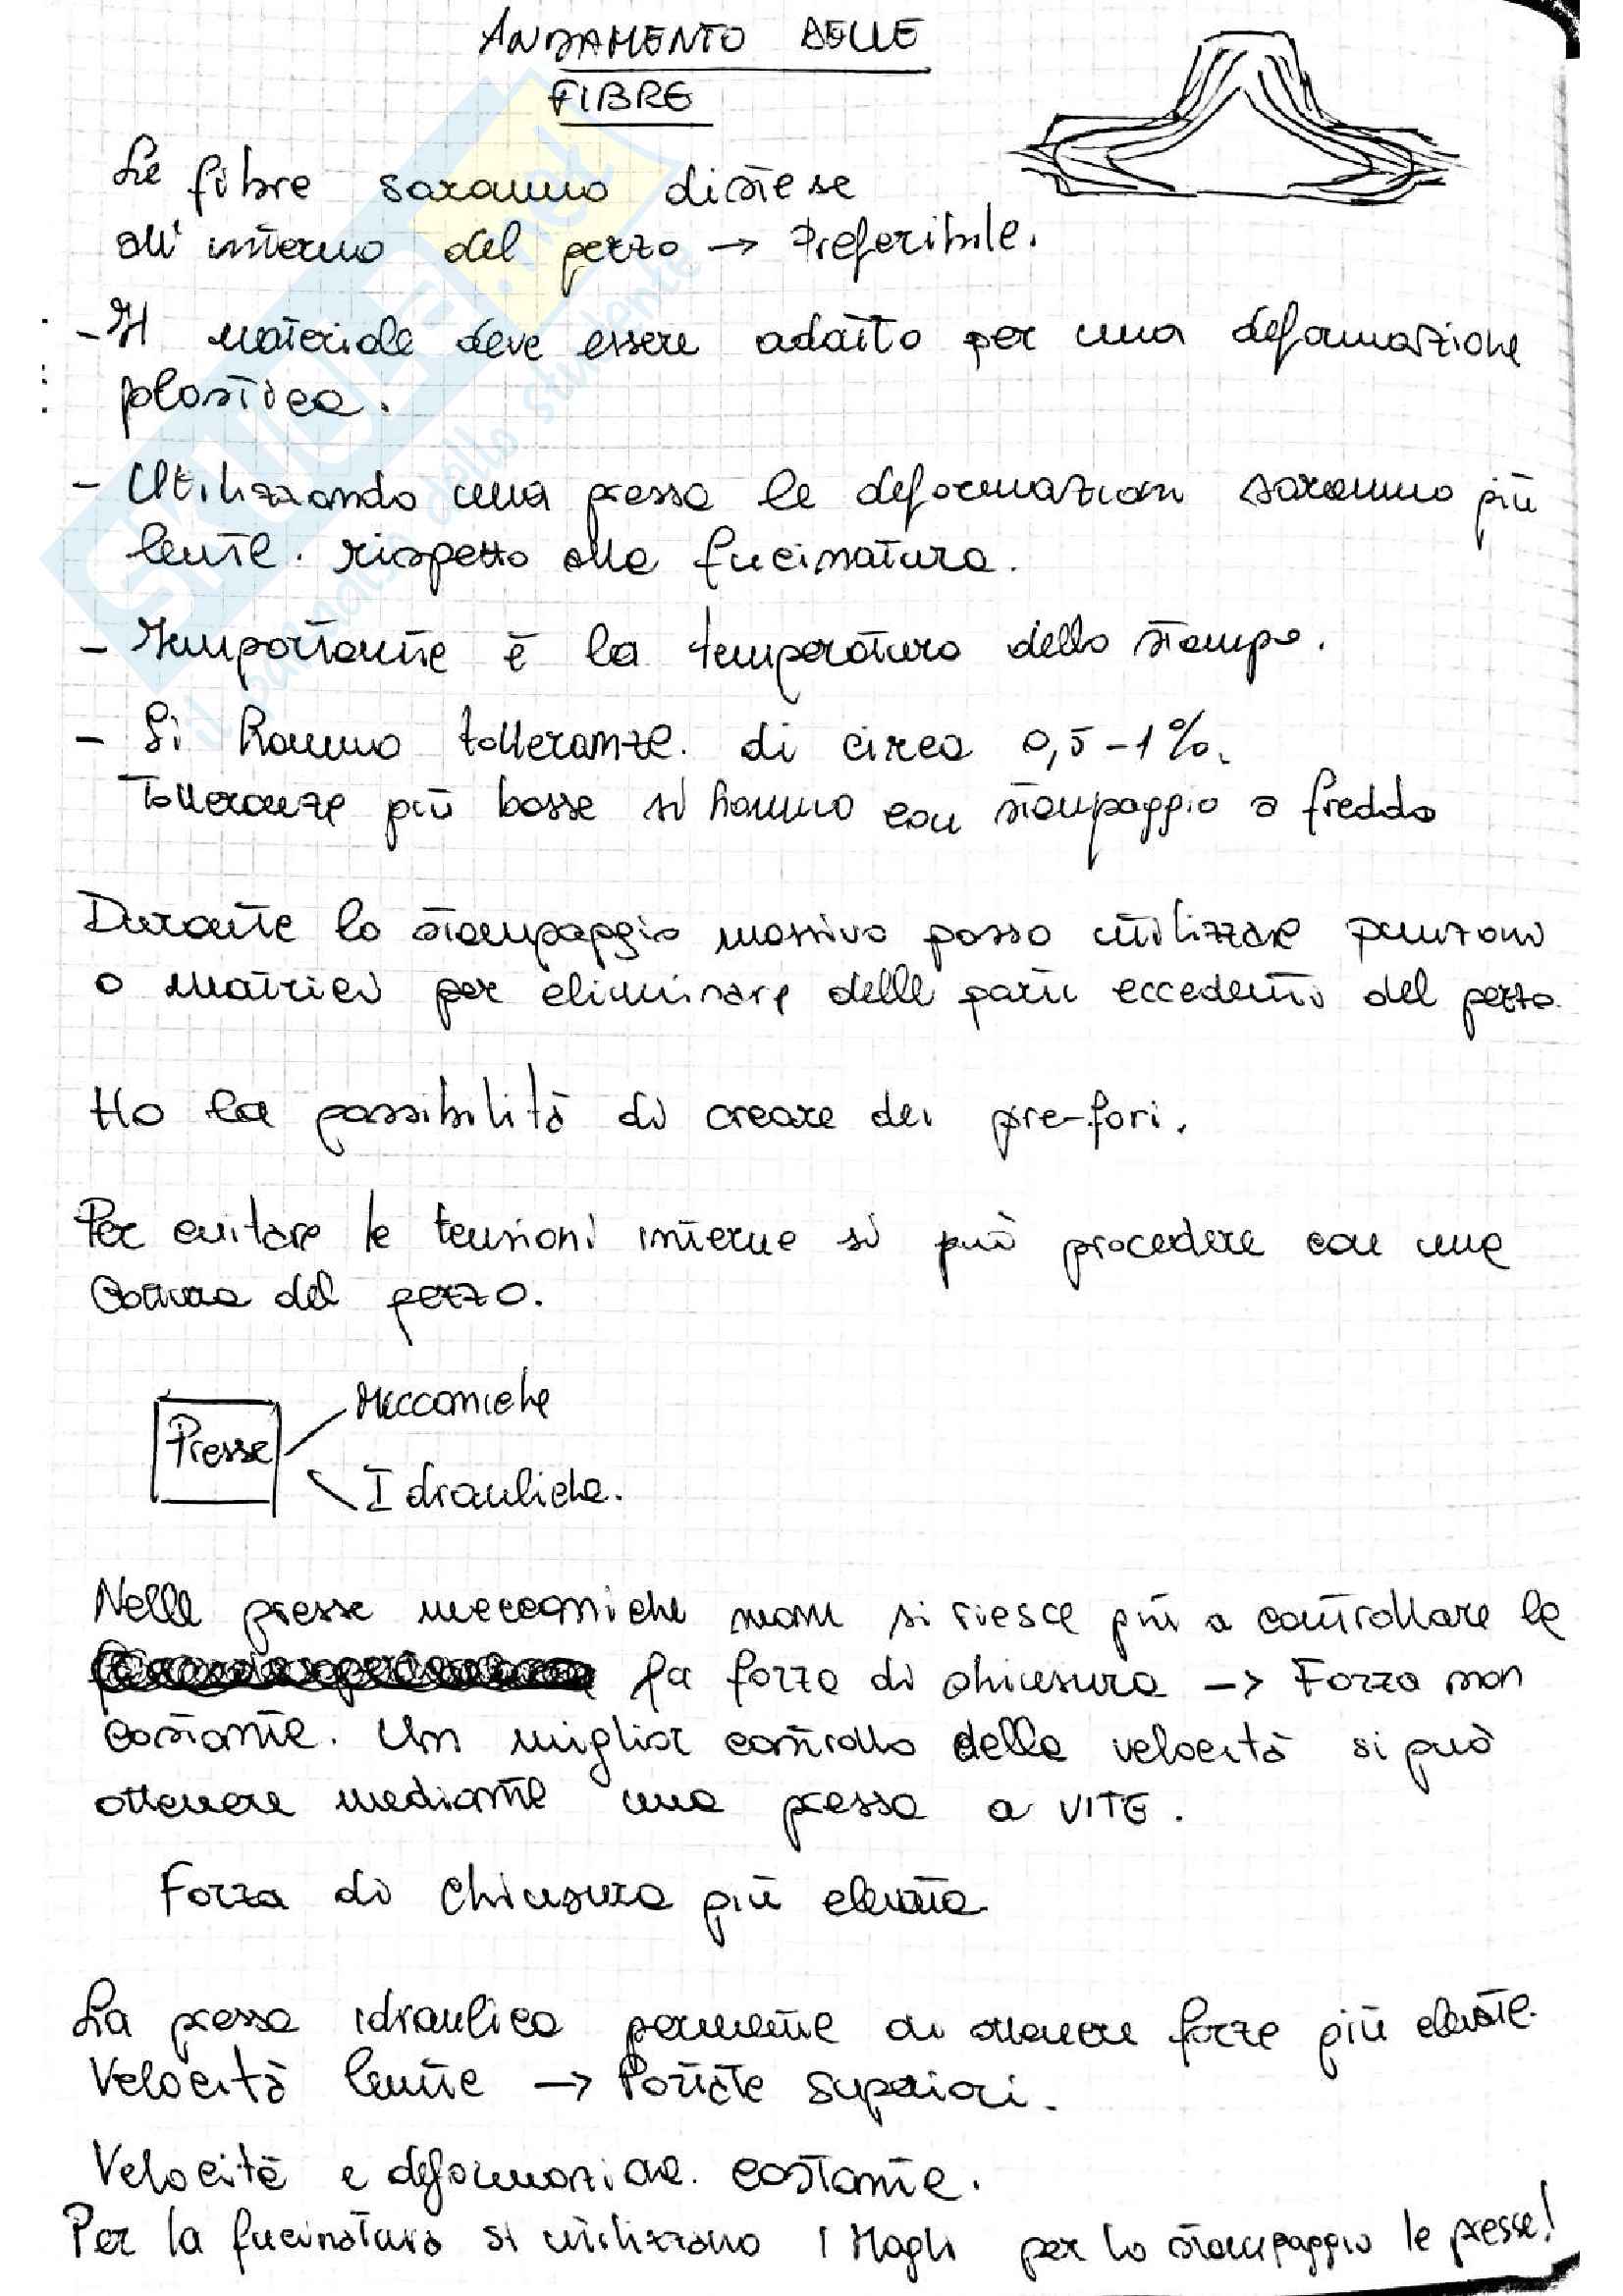 ANDAMENTO DELLE
FIBRE
Le fibre saranno distese
all'interno del pezzo → Preferibile.
- Il materiale deve essere adatto per una deformazione
plastica.
- Utilizzando una pressa le deformazioni saranno più
lente. rispetto alla fucinatura.
- Importante è la temperatura dello stampo.
- Si hanno tolleranze. di circa 0,5-1%.
Tolleranze più basse si hanno con stampaggio a freddo
Durante lo stampaggio massivo posso utilizzare punzoni
o matrici per eliminare delle parti eccedenti del pezzo.
Ho la possibilità di creare dei pre-fori.
Per evitare le tensioni interne si può procedere con una
del pezzo.
Presse
Meccaniche
Idrauliche.
Nelle presse meccaniche non si riesce più a controllare la
la forza di chiusura → Forza non
costante. Un miglior controllo della velocità si può
ottenere mediante una pressa a VITE.
Forza di chiusura più elevata
La pressa idraulica permette di ottenere forze più elevate.
Velocità lente → Portate superiori.
Velocità e deformazione. costante.
Per la fucinatura si utilizzano i Magli per lo stampaggio le presse!
SKUOLA.net
il paradiso dello studente